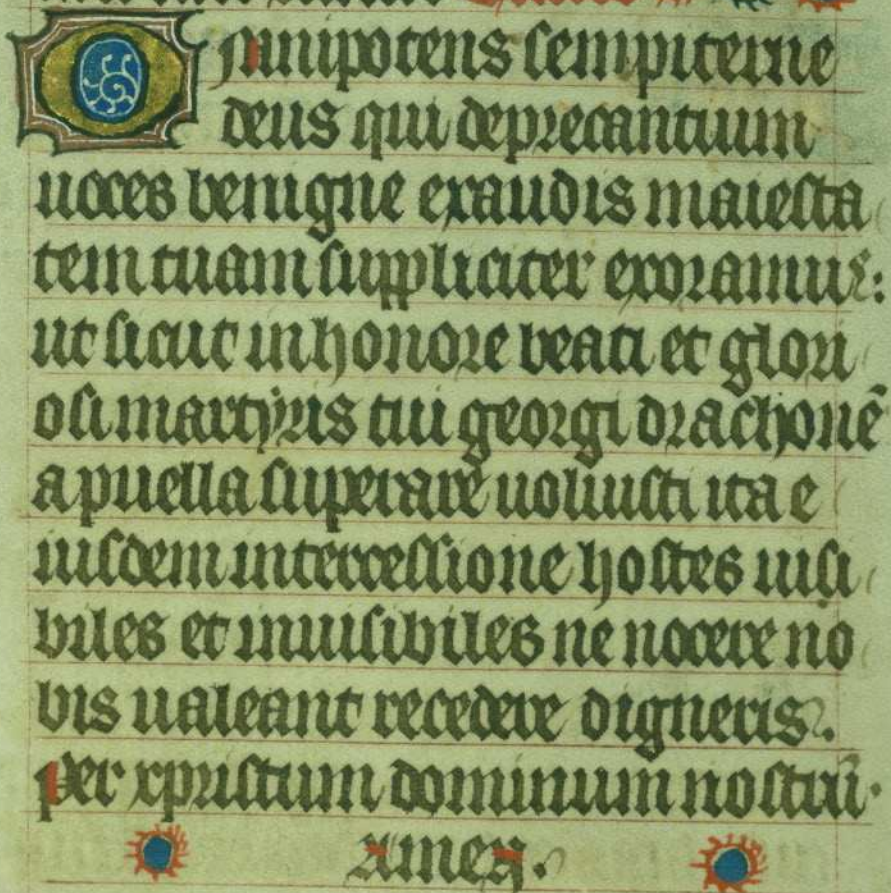 Omnipotens sempiterne
deus qui deprecantium
uoces benigne exaudis maiesta
tem tuam suppliciter exoramus:
ut sicut in honore beati et glori
osi martyris tui georgi drachonē
a puella superare uoluisti ita e
iusdem intercessione hostes uisi
biles et inuisibiles ne nocere no
bis ualeant recedere digneris.
per xpristum dominum nostrū.
Amen.